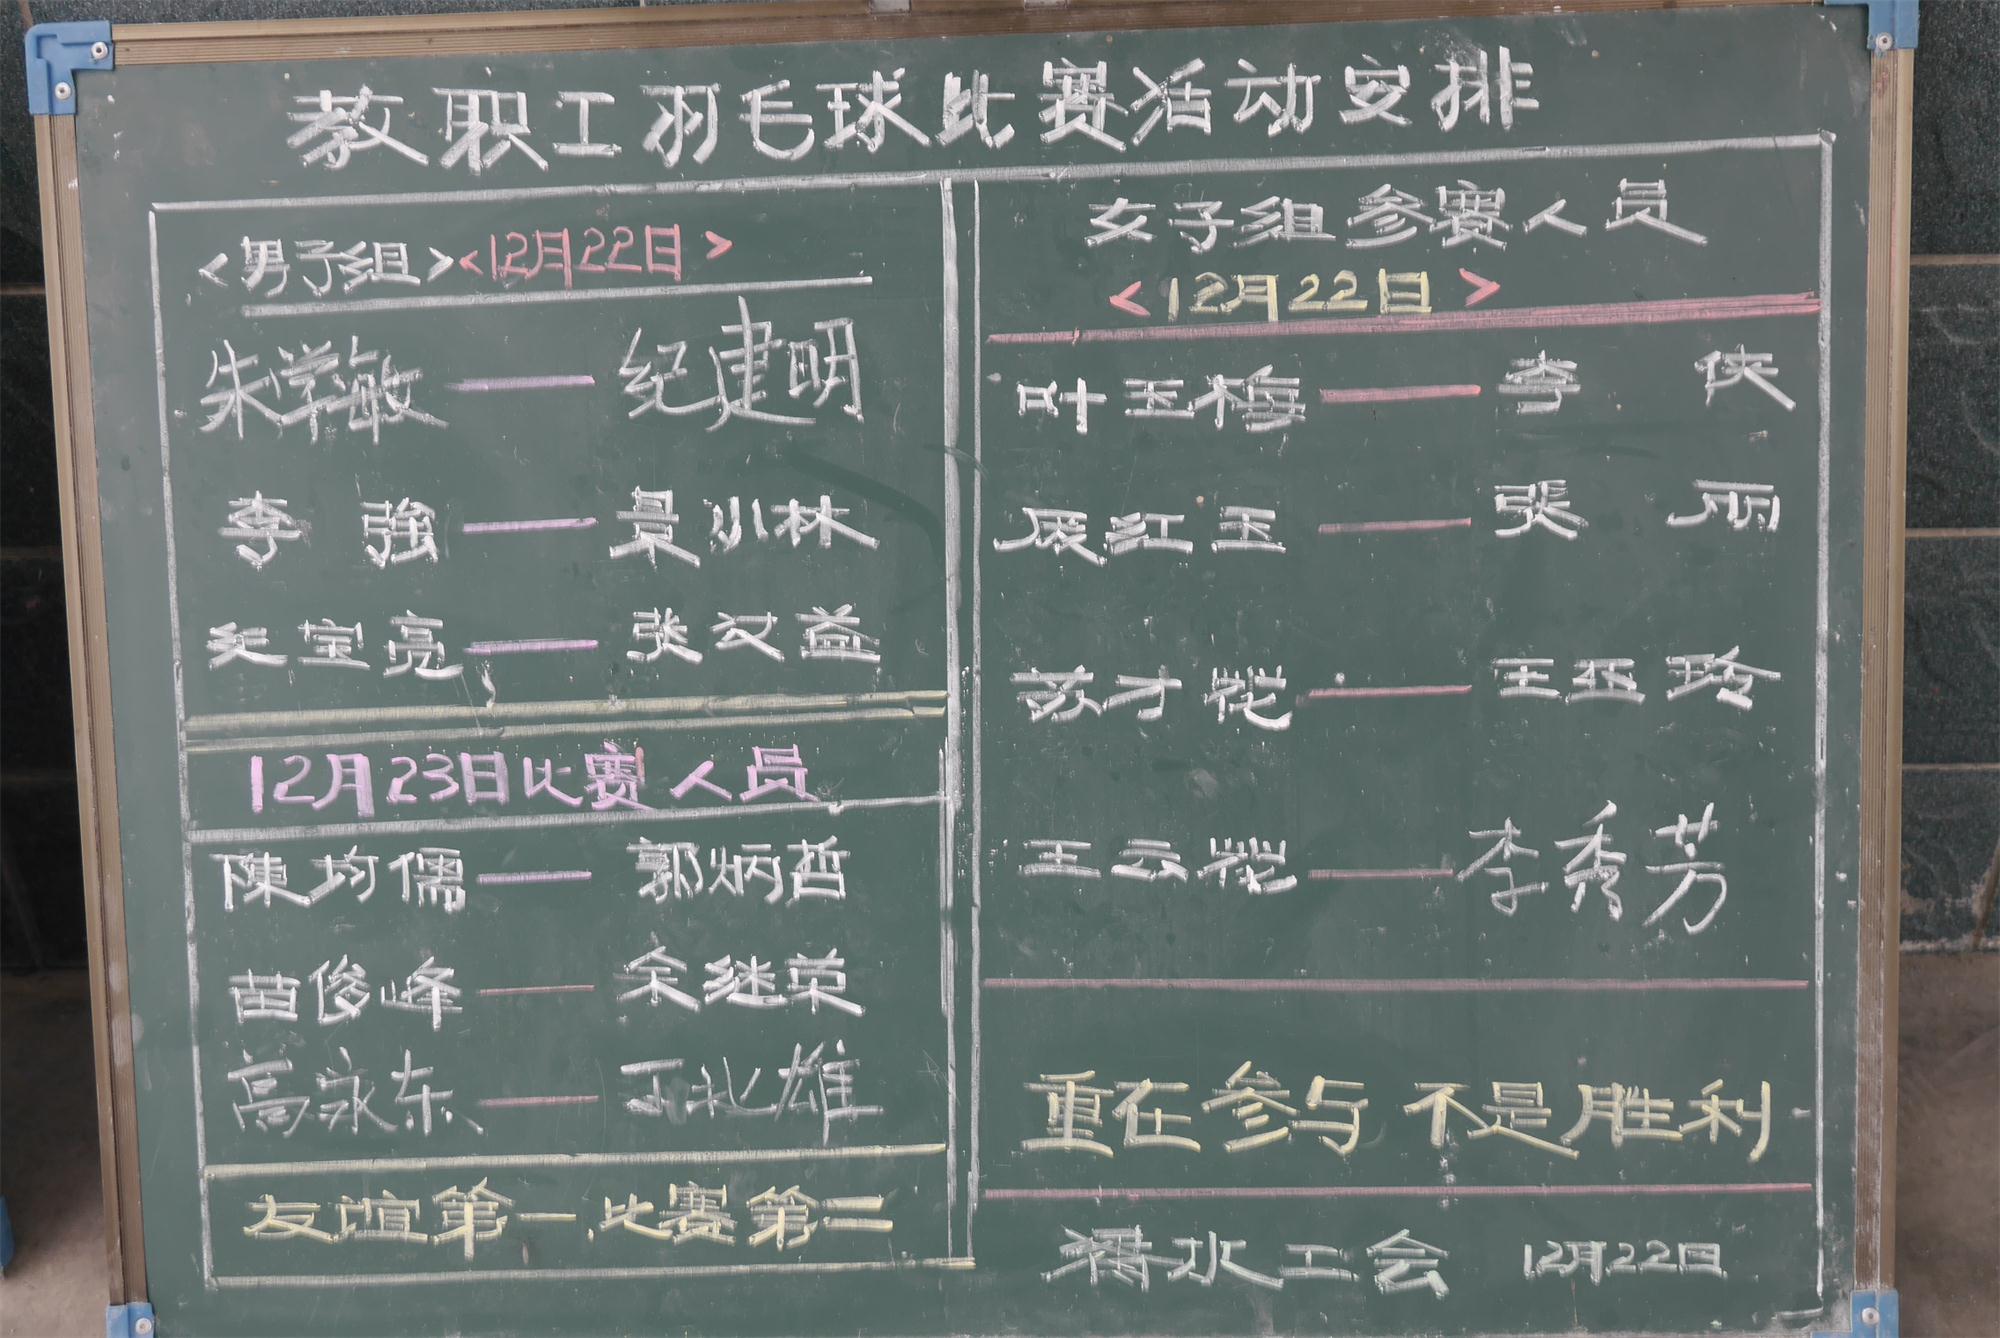 教职工羽毛球比赛活动安排
<男子组><12月22日>
朱学敏——纪建明
李強——景小林
纪宝亮——张汉益
12月23日比赛人员
陳均儒——郭炳哲
苗俊峰——余继荣
高永东——王礼雄
友谊第一比赛第二
女子组参赛人员
<12月22日>
叶玉梅——李侠
展红玉——张丽
苏才花——王玉玲
王云花——李秀芳
重在参与 不是胜利
水工会 12月22日